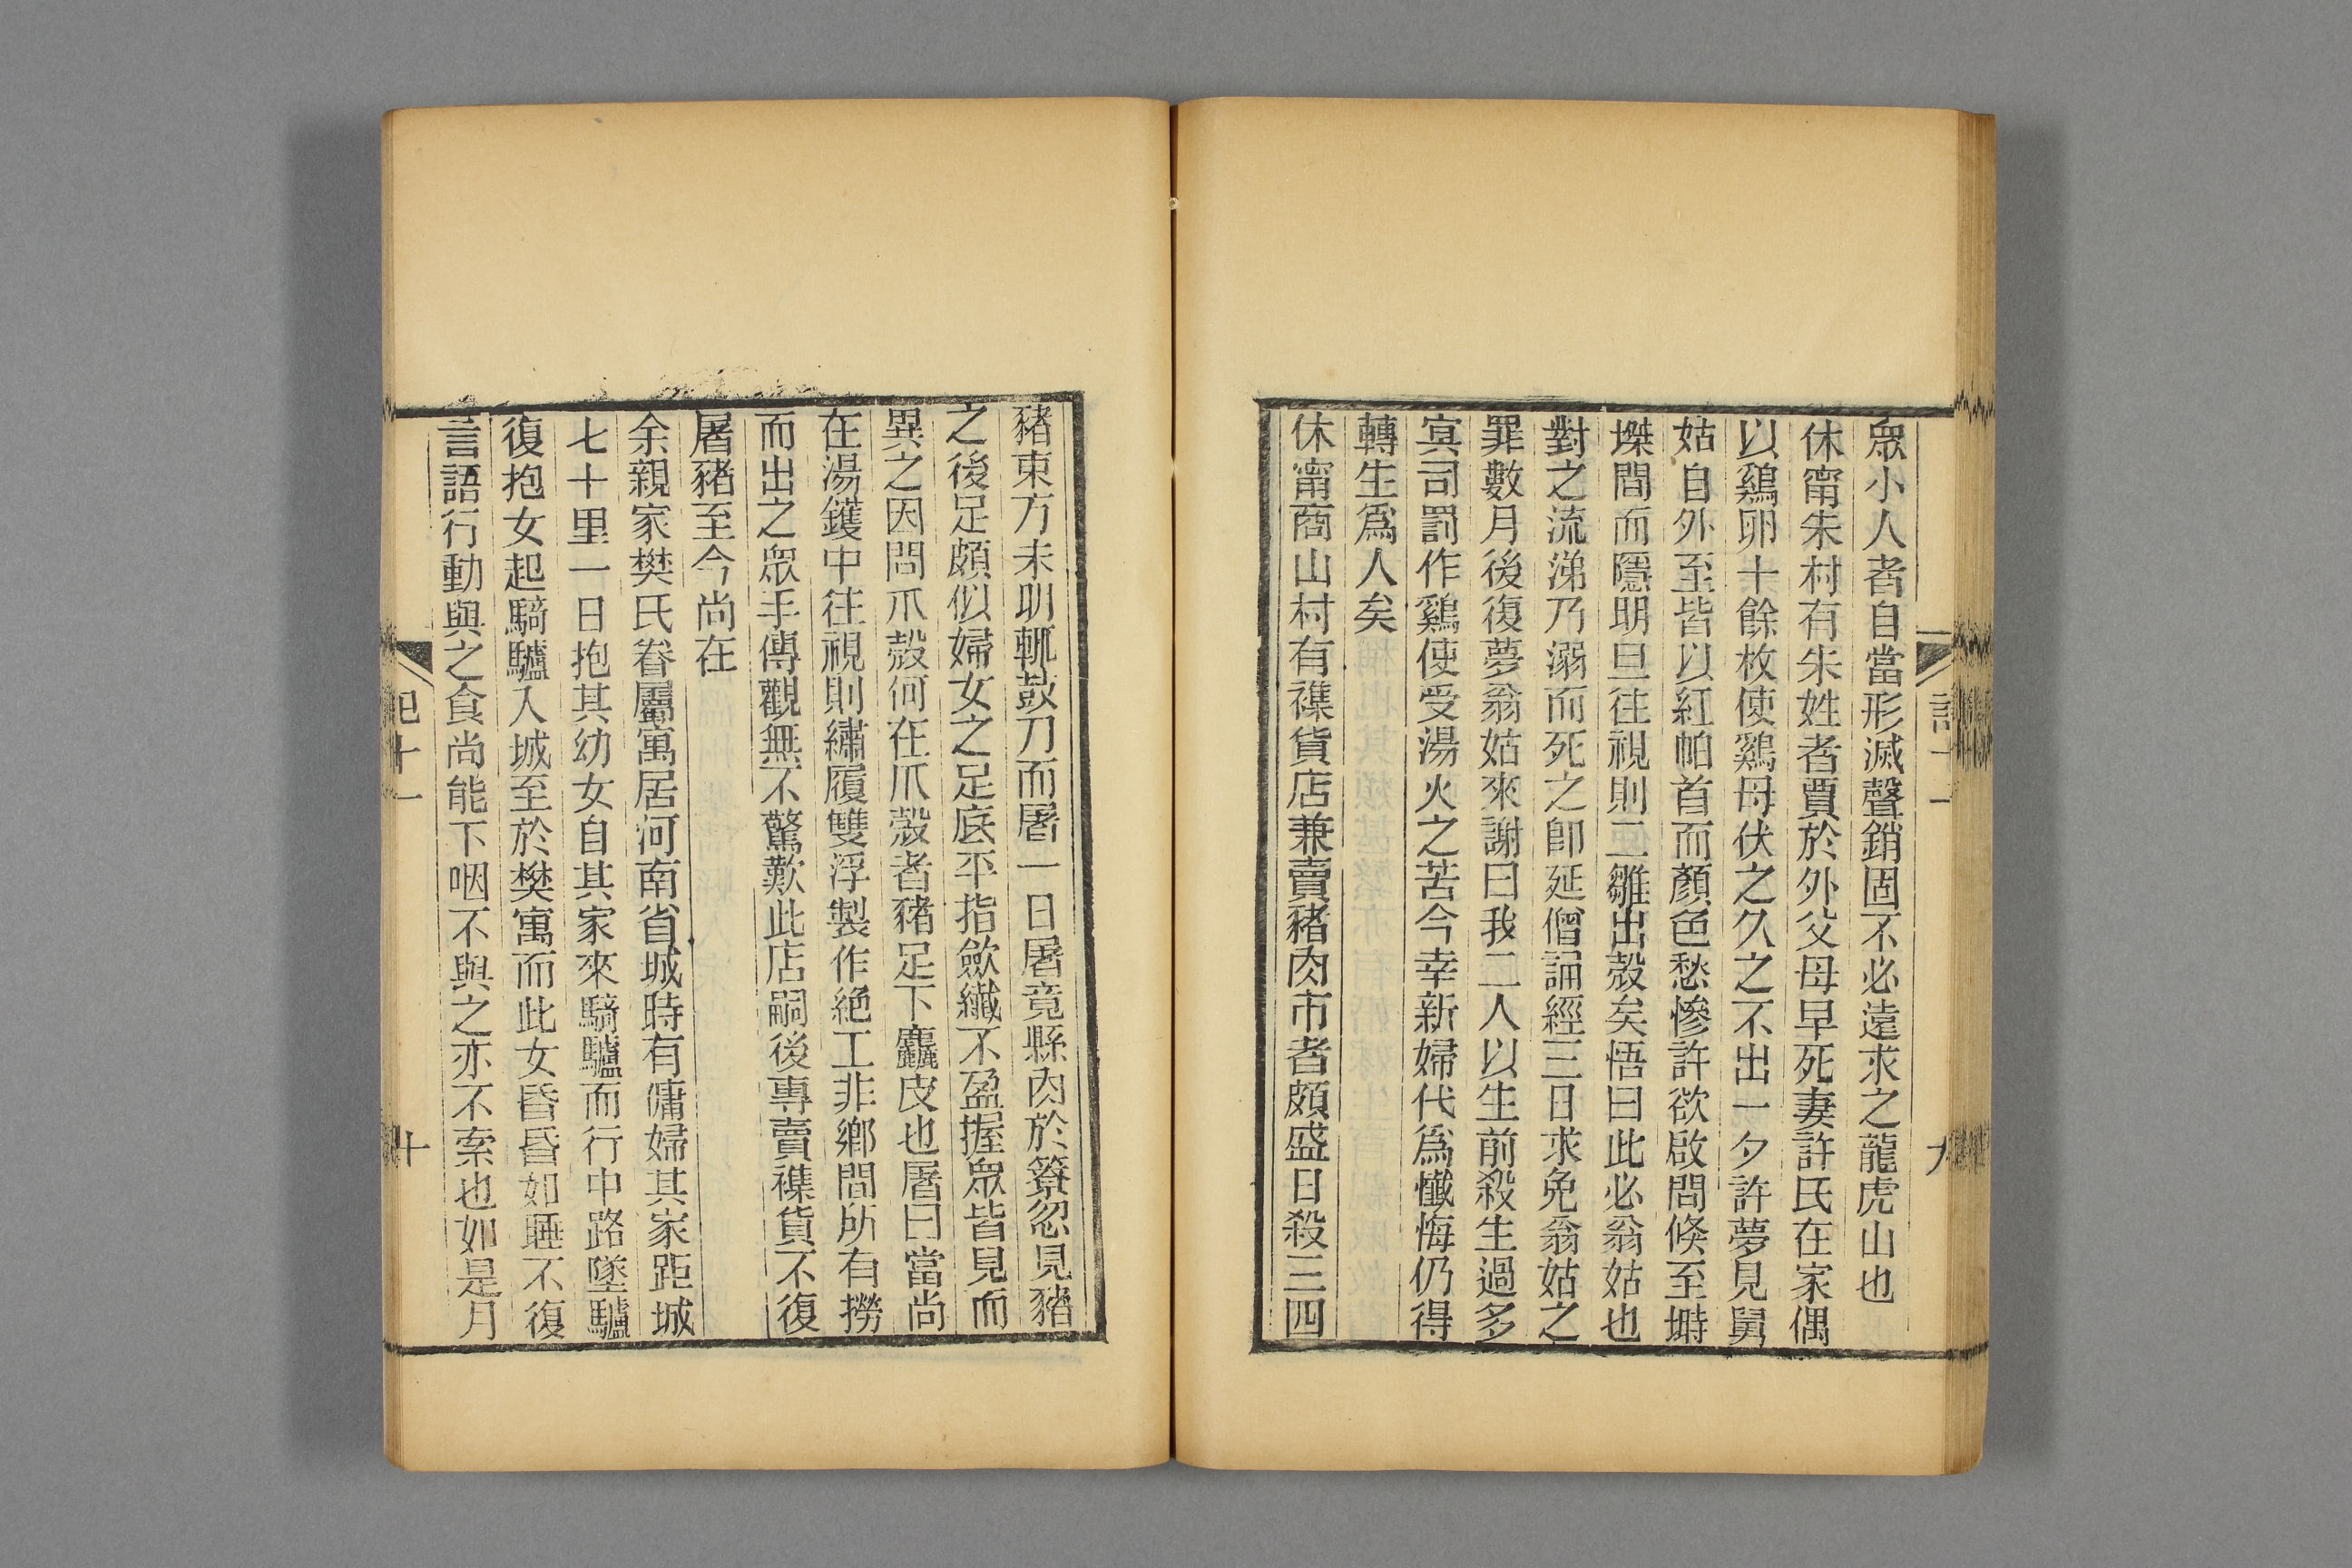 衆小人者自當形滅聲銷固不必遠求之龍虎山也
休甯朱村有朱姓者賈於外父母早死妻許氏在家偶
以鷄卵十餘枚使鷄母伏之久之不出一夕許夢見舅
姑自外至皆以紅帕首而顏色愁慘許欲啟問倏至塒
墀間而隱明旦往視則二雛出殼矣悟曰此必翁姑也
對之流涕乃溺而死之卽延僧誦經三日求免翁姑之
罪數月後復夢翁姑來謝曰我二人以生前殺生過多
冥司罰作鷄使受湯火之苦今幸新婦代爲懺悔仍得
轉生爲人矣
休甯商山村有襍貨店兼賣豬肉市者頗盛日殺三四
九
豬東方未明輒鼓刀而屠一日屠竟縣肉於簝忽見豬
之後足頗似婦女之足底平指歛纎不盈握衆皆見而
異之因問爪殼何在爪殼者豬足下麤皮也屠曰當尚
在湯鑊中往視則繡履雙浮製作絶工非鄉間所有撈
而出之衆手傳觀無不驚歎此店嗣後專賣襍貨不復
屠豬至今尚在
余親家樊氏眷屬寓居河南省城時有傭婦其家距城
七十里一日抱其幼女自其家來騎驢而行中路墜驢
復抱女起騎驢入城至於樊寓而此女昏昏如睡不復
言語行動與之食尚能下咽不與之亦不索也如是月
十